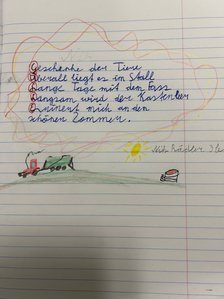 Geschenke der Tiere
Überall liegt es im Stall
Lange Tage mit dem Fass
Langsam wird der Kasten leer
Erinnert mich an den
schönen Sommer.